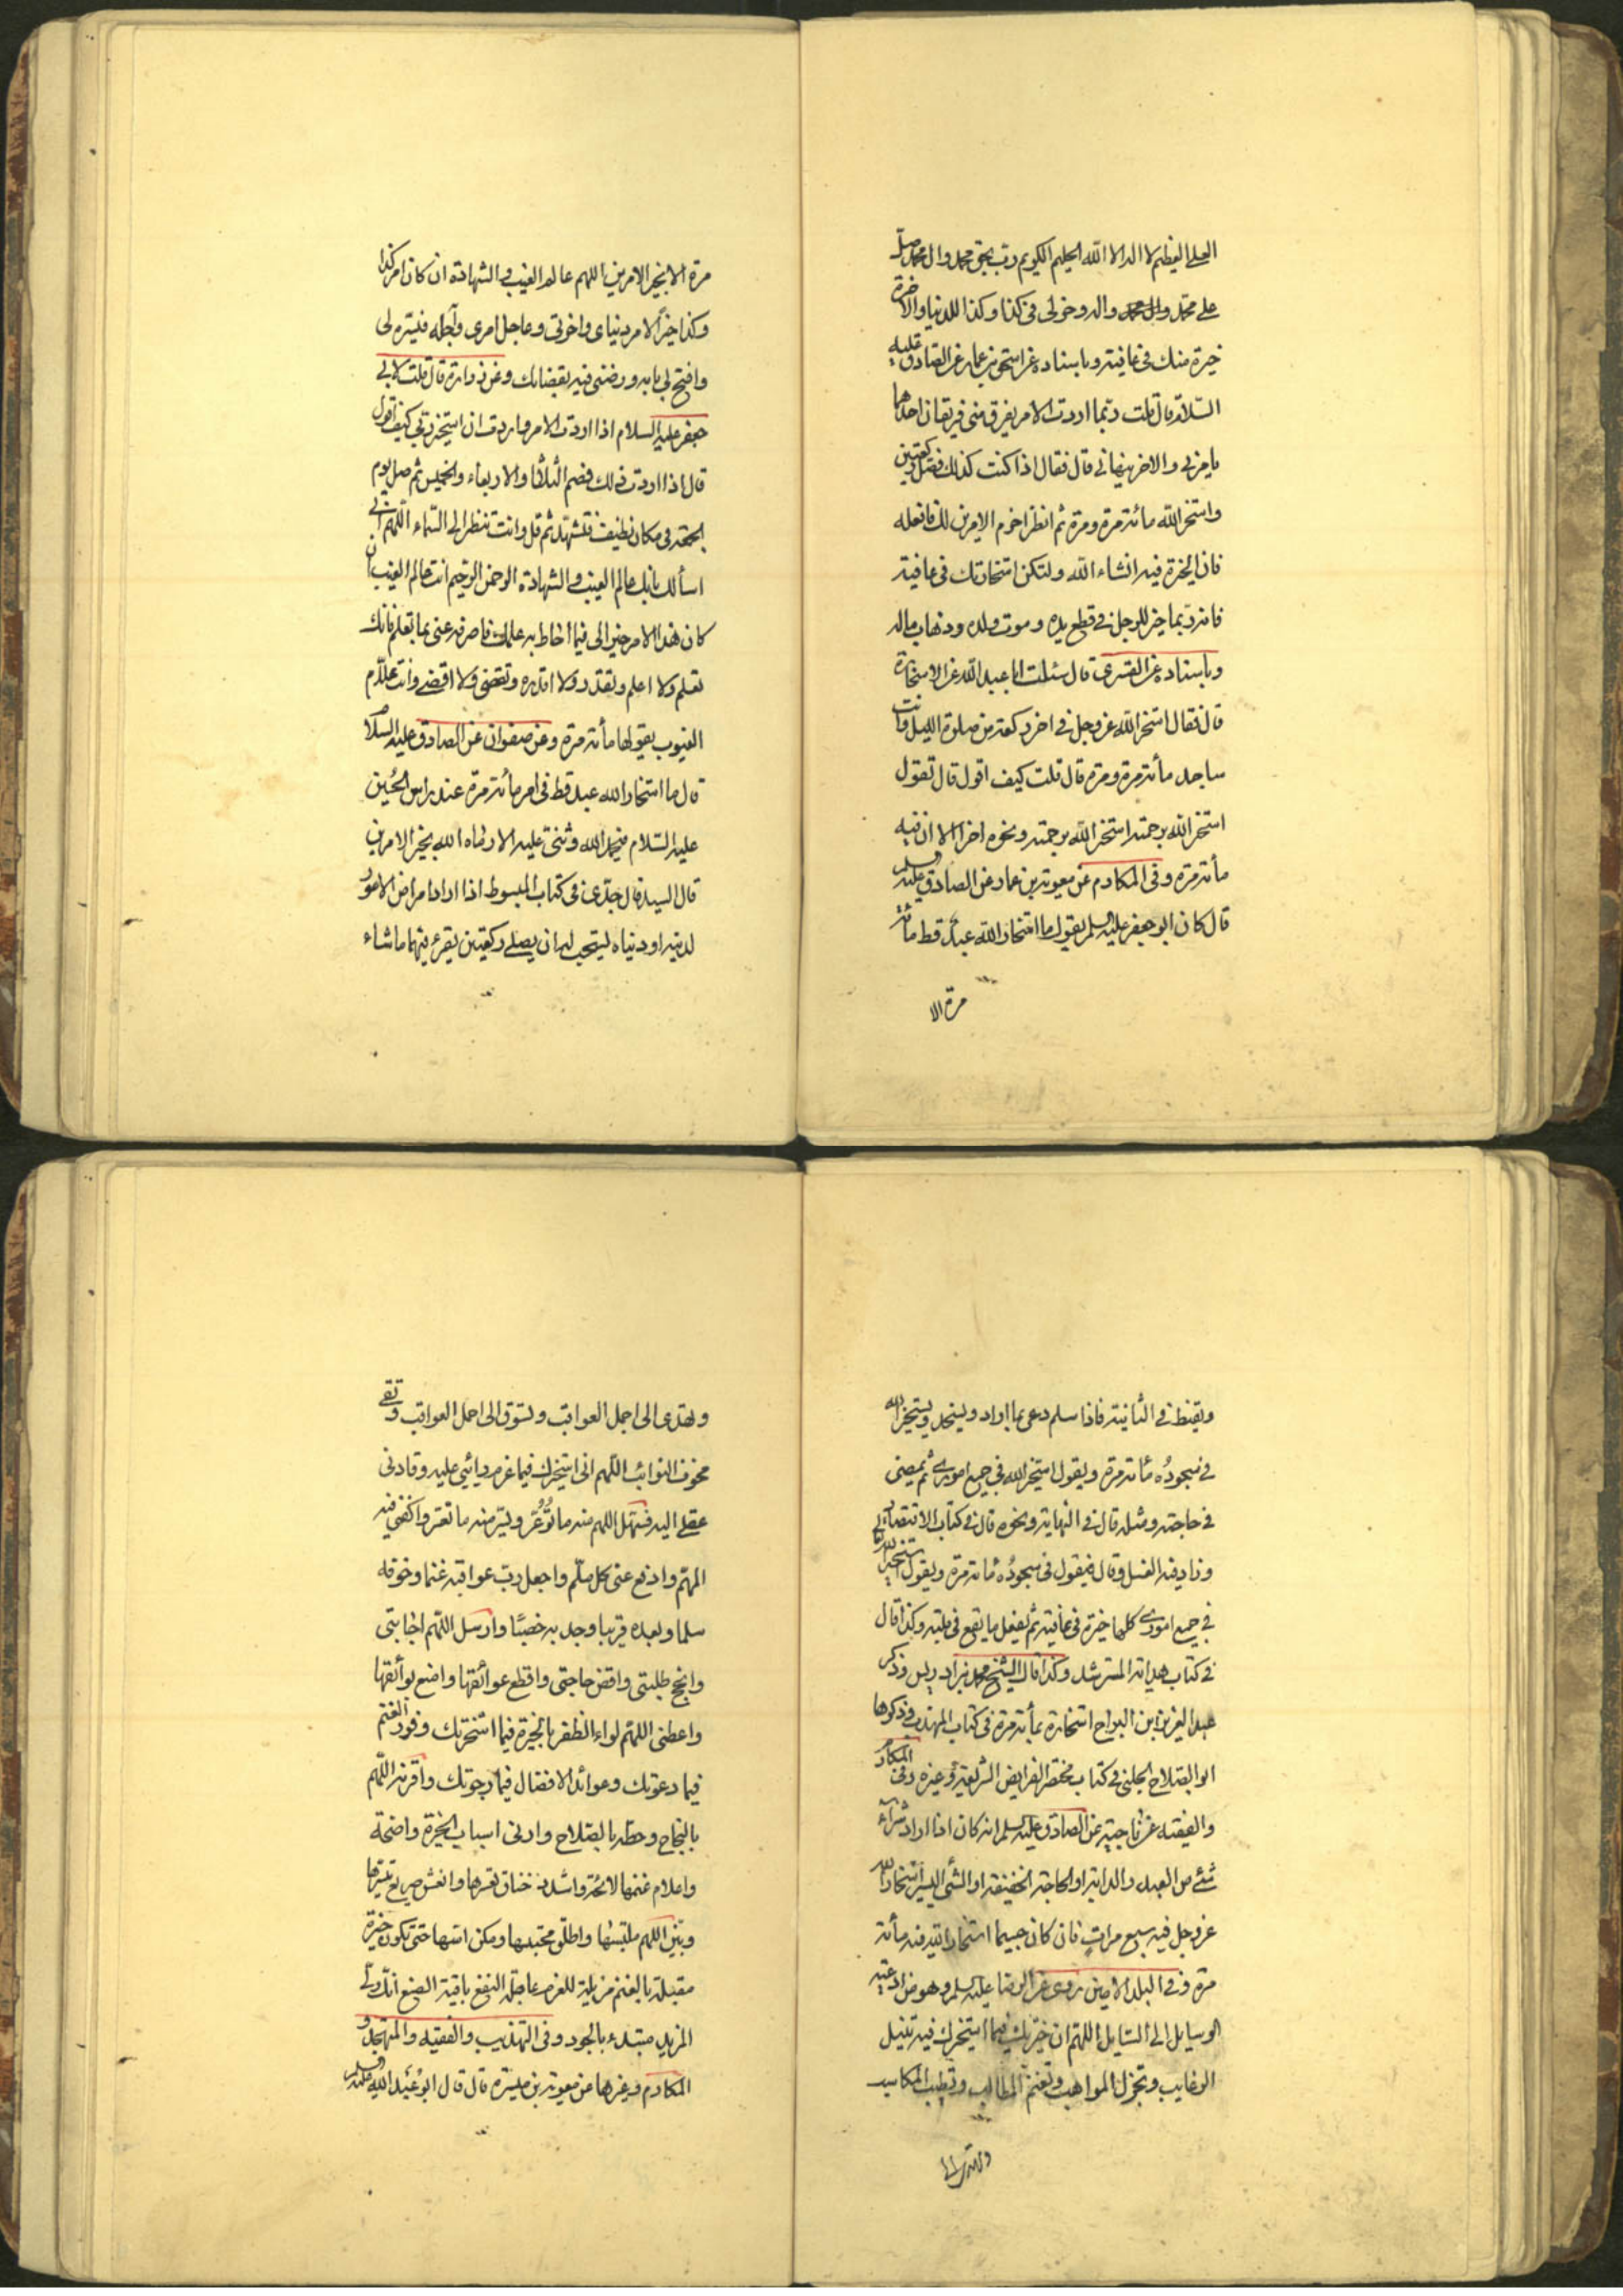 العلي العظيم لا اله الا الله الحليم الكريم رب بحق محمد وال محمد صل
على محمد وال محمد واله وخر لى فى كذا وكذا للدنيا والاخرة
خيرة منك فى عافيته وباسناده عن اسحق بن عمار عن الصادق عليه
السلام قال قلت ربما اردت الامر يفرق منى فريقان احدهما
يامرنى والاخر ينهانى قال فقال اذا كنت كذلك فصل ركعتين
واستخر الله مائة مرة ومرة ثم انظر اخرم الامرين لك فافعله
فان الخيرة فيه انشاء الله ولتكن استخارتك فى عافية
فانه ربما خير للرجل فى قطع يده وموت ولده وذهاب ماله
وباسناده عن القسرى قال سئلت ابا عبد الله عن الاستخارة
قال فقال استخر الله عز وجل فى اخر ركعة من صلوة الليل وانت
ساجد مائة مرة ومرة قال قلت كيف اقول قال تقول
استخر الله برحمته استخر الله برحمته ونحوه اخر الا ان فيه
مائة مرة وفى المكارم عن معوية بن عمار عن الصادق عليه السلم
قال كان ابو جعفر عليه السلم يقول ما استخار الله عبد قط مائة
مرة الا
مرة الا بخير الامرين اللهم عالم الغيب والشهادة ان كان امر كذا
وكذا خيرا لامر دنياى واخرتى وعاجل امرى وآجله فيسره لى
وافتح لى بابه ورضنى فيه بقضائك وعن زرارة قال قلت لابى
جعفر عليه السلام اذا اردت الامر واردت ان استخير ربى كيف اقول
قال اذا اردت ذلك فصم الثلاثا والاربعاء والخميس ثم صل يوم
الجمعة فى مكان نظيف فتشهد ثم قل وانت تنظر الى السماء اللهم انى
اسألك بانك عالم الغيب والشهادة الرحمن الرحيم انت عالم الغيب ان
كان هذا الامر خيرا لى فيما احاط به علمك فاصرفه عنى بما تعلم فانك
تعلم ولا اعلم وتقدر ولا اقدر وتقضى ولا اقضى وانت علام
الغيوب يقولها مائة مرة وعن صفوان عن الصادق عليه السلام
قال ما استخار الله عبد قط فى امر مائة مرة عند راس الحسين
عليه السلام فيحمد الله وثنى عليه الا رماه الله بخير الامرين
قال السيد قال جدى فى كتاب المبسوط اذا اراد امرا من الامور
لدينه او دنياه يستحب له ان يصلى ركعتين يقرء فيهما ما شاء
ويقنط فى الثانية فاذا سلم دعى بما اراد ويسجد ويستخير الله
فى سجوده مائة مرة ويقول استخير الله فى جميع امورى ثم يمضى
فى حاجته ومثله قال فى النهاية ونحوه قال فى كتاب الاقتصاد
وزاد فيه الغسل وقال فيقول فى سجوده مائة مرة ويقول استخير الله
فى جميع امورى كلها خيرة فى عافية ثم يفعل ما يقع فى قلبه وكذا قال
فى كتاب هداية المسترشد وكذا قال الشيخ محمد بن ادريس وذكر
عبد العزيز ابن البراج استخارة بمائة مرة فى كتاب المهذب وذكرها
ابو الصلاح الحلبى فى كتاب مختصر الفرايض الشرعية وغيره وفى المكارم
والفقيه عن ناجية عن الصادق عليه السلم انه كان اذا اراد شراء
شئى من العبد والدابة او الحاجة الخفيفة او الشئ اليسير استخار الله
عز وجل فيه سبع مرات فان كان جسيما استخار الله فيه مائة
مرة وفى البلد الامين روى عن الرضا عليه السلم وهو من ادعية
الوسايل الى السايل اللهم ان خيرتك فيما استخيرك فيه تنيل
الرغايب وتجزل المواهب وتغنم المطالب وتطيب المكاسب
وتهدى الى
وتهدى الى اجمل العواقب وتسوق الى احمل العواقب وتقى
مخوف النوائب اللهم انى استخيرك فيما عزم رائيى عليه وقادنى
عقلى اليه فسهل اللهم منه ما توعر ويسر منه ما تعسر واكفنى فيه
المهم وادفع عنى كل ملم واجعل رب عواقبه غنما وخوفه
سلما وبعده قربا وجدبه خصبا وارسل اللهم اجابتى
وانجح طلبتى واقض حاجتى واقطع عوائقها وامنع بوائقها
واعطنى اللهم لواء الظفر بالخيرة فيما استخرتك وفور الغنم
فيما دعوتك وعوائد الافضال فيما رجوتك واقرنه اللهم
بالنجاح وحطه بالصلاح وارنى اسباب الخيرة واضحة
واعلام غنمها لائحة واشدد خناق تعسرها وانعش صريع تيسرها
وبين اللهم ملتبسها واطلق محتبسها ومكن اسها حتى تكون خيرة
مقبلة بالغنم مزيلة للغرم عاجلة النفع باقية الصنع انك ولى
المزيد مبتدء بالجود وفى التهذيب والفقيه والمتهجد و
المكارم وغيرها عن معوية بن ميسرة قال قال ابو عبد الله عليه السلم